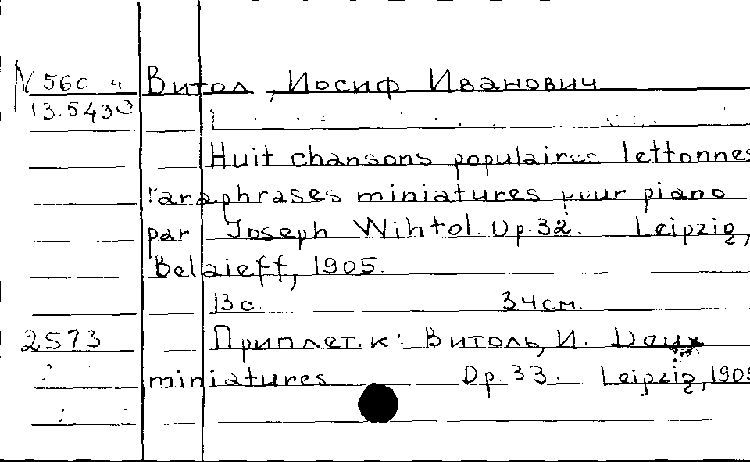 N 56c Витол, Иосиф Иванович
13.543
Huit chansons populaires lettonnes
Paraphrases miniatures pour piano
par Joseph Wihtol. Op. 32. Leipzig,
Belaieff, 1905.
13 с. 34 см.
2573 Приплет. к: Витоль, И. Deux
miniatures Op. 33. Leipzig, 1905